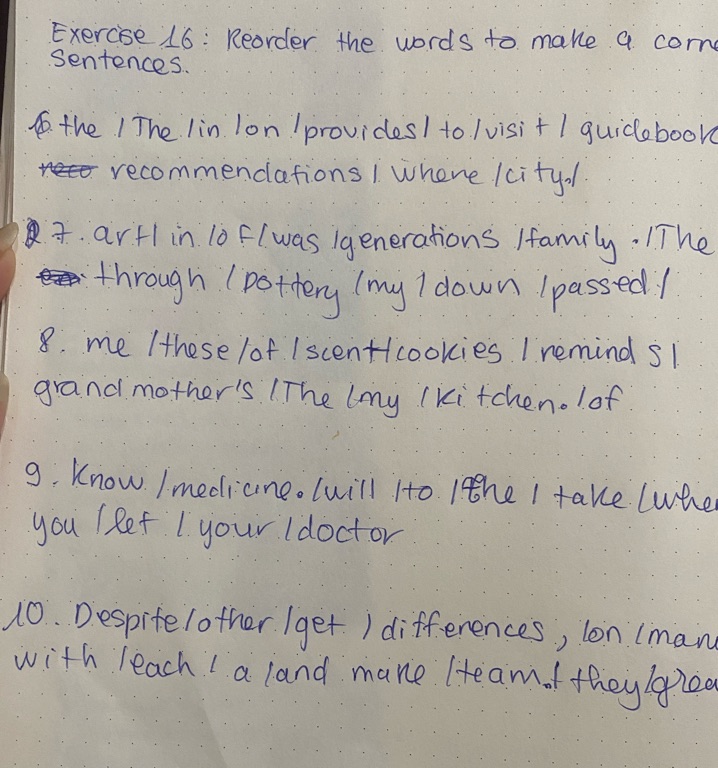 Exercise 16: Reorder the words to make a corre
Sentences.
6 the / The / in / on / provides / to / visit / guidebook
recommendations / where / city. /
7. art / in / of / was / generations / family. / The
through / pottery / my / down / passed /
8. me / these / of / scent / cookies / reminds /
grandmother's / The / my / kitchen. / of
9. Know / medicine. / will / to / the / take / when
you / let / your / doctor
10. Despite / other / get / differences, / on / man
with / each / a / and make / team. / they / grea